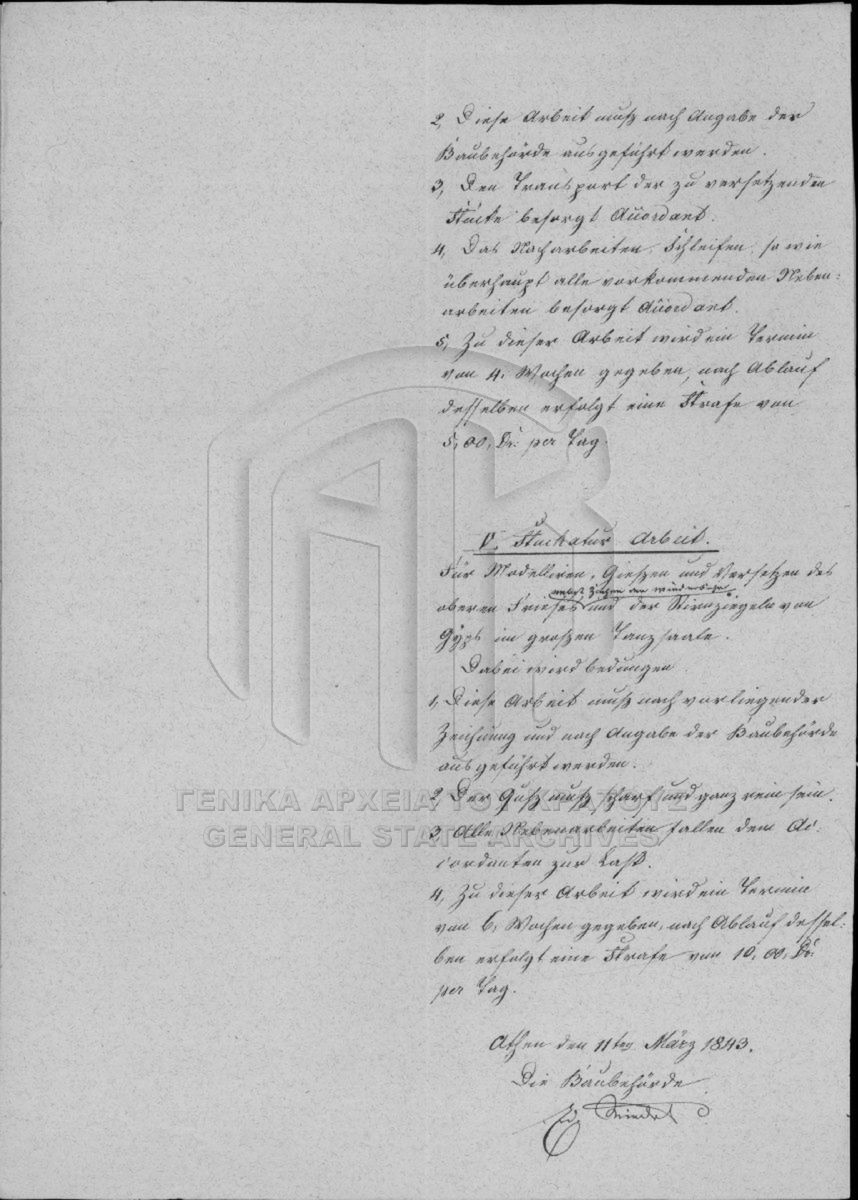 2, Diese Arbeit muß nach Angabe der
Baubehörde ausgeführt werden.
3, Den Transport der zu versetzenden
Stücke besorgt Accordant.
4, Das Nacharbeiten, Schleifen, so wie
überhaupt alle vorkommenden Neben-
arbeiten besorgt Accordant.
5, Zu dieser Arbeit wird ein Termin
von 4. Wochen gegeben, nach Ablauf
desselben erfolgt eine Strafe von
5,00, Dr: per Tag.
V, Stuckatur Arbeit.
Für Modelliren, Gießen und Versetzen des
oberen Frieses und der Stirnziegeln von
Gÿps im großen Tanzsaale.
Dabei wird bedungen
1, Diese Arbeit muß nach vorliegender
Zeichnung und nach Angabe der Baubehörde
ausgeführt werden.
2, Der Guß muß scharf und ganz rein sein.
3, Alle Nebenarbeiten fallen dem Ac-
cordanten zur Last.
4, Zu dieser Arbeit wird ein Termin
von 6, Wochen gegeben, nach Ablauf dessel-
ben erfolgt eine Strafe von 10,00, Dr:
per Tag.
Athen den 11ten März 1843.
Die Baubehörde
ΓΕΝΙΚΑ ΑΡΧΕΙΑ ΤΟΥ ΚΡΑΤΟΥΣ
GENERAL STATE ARCHIVES